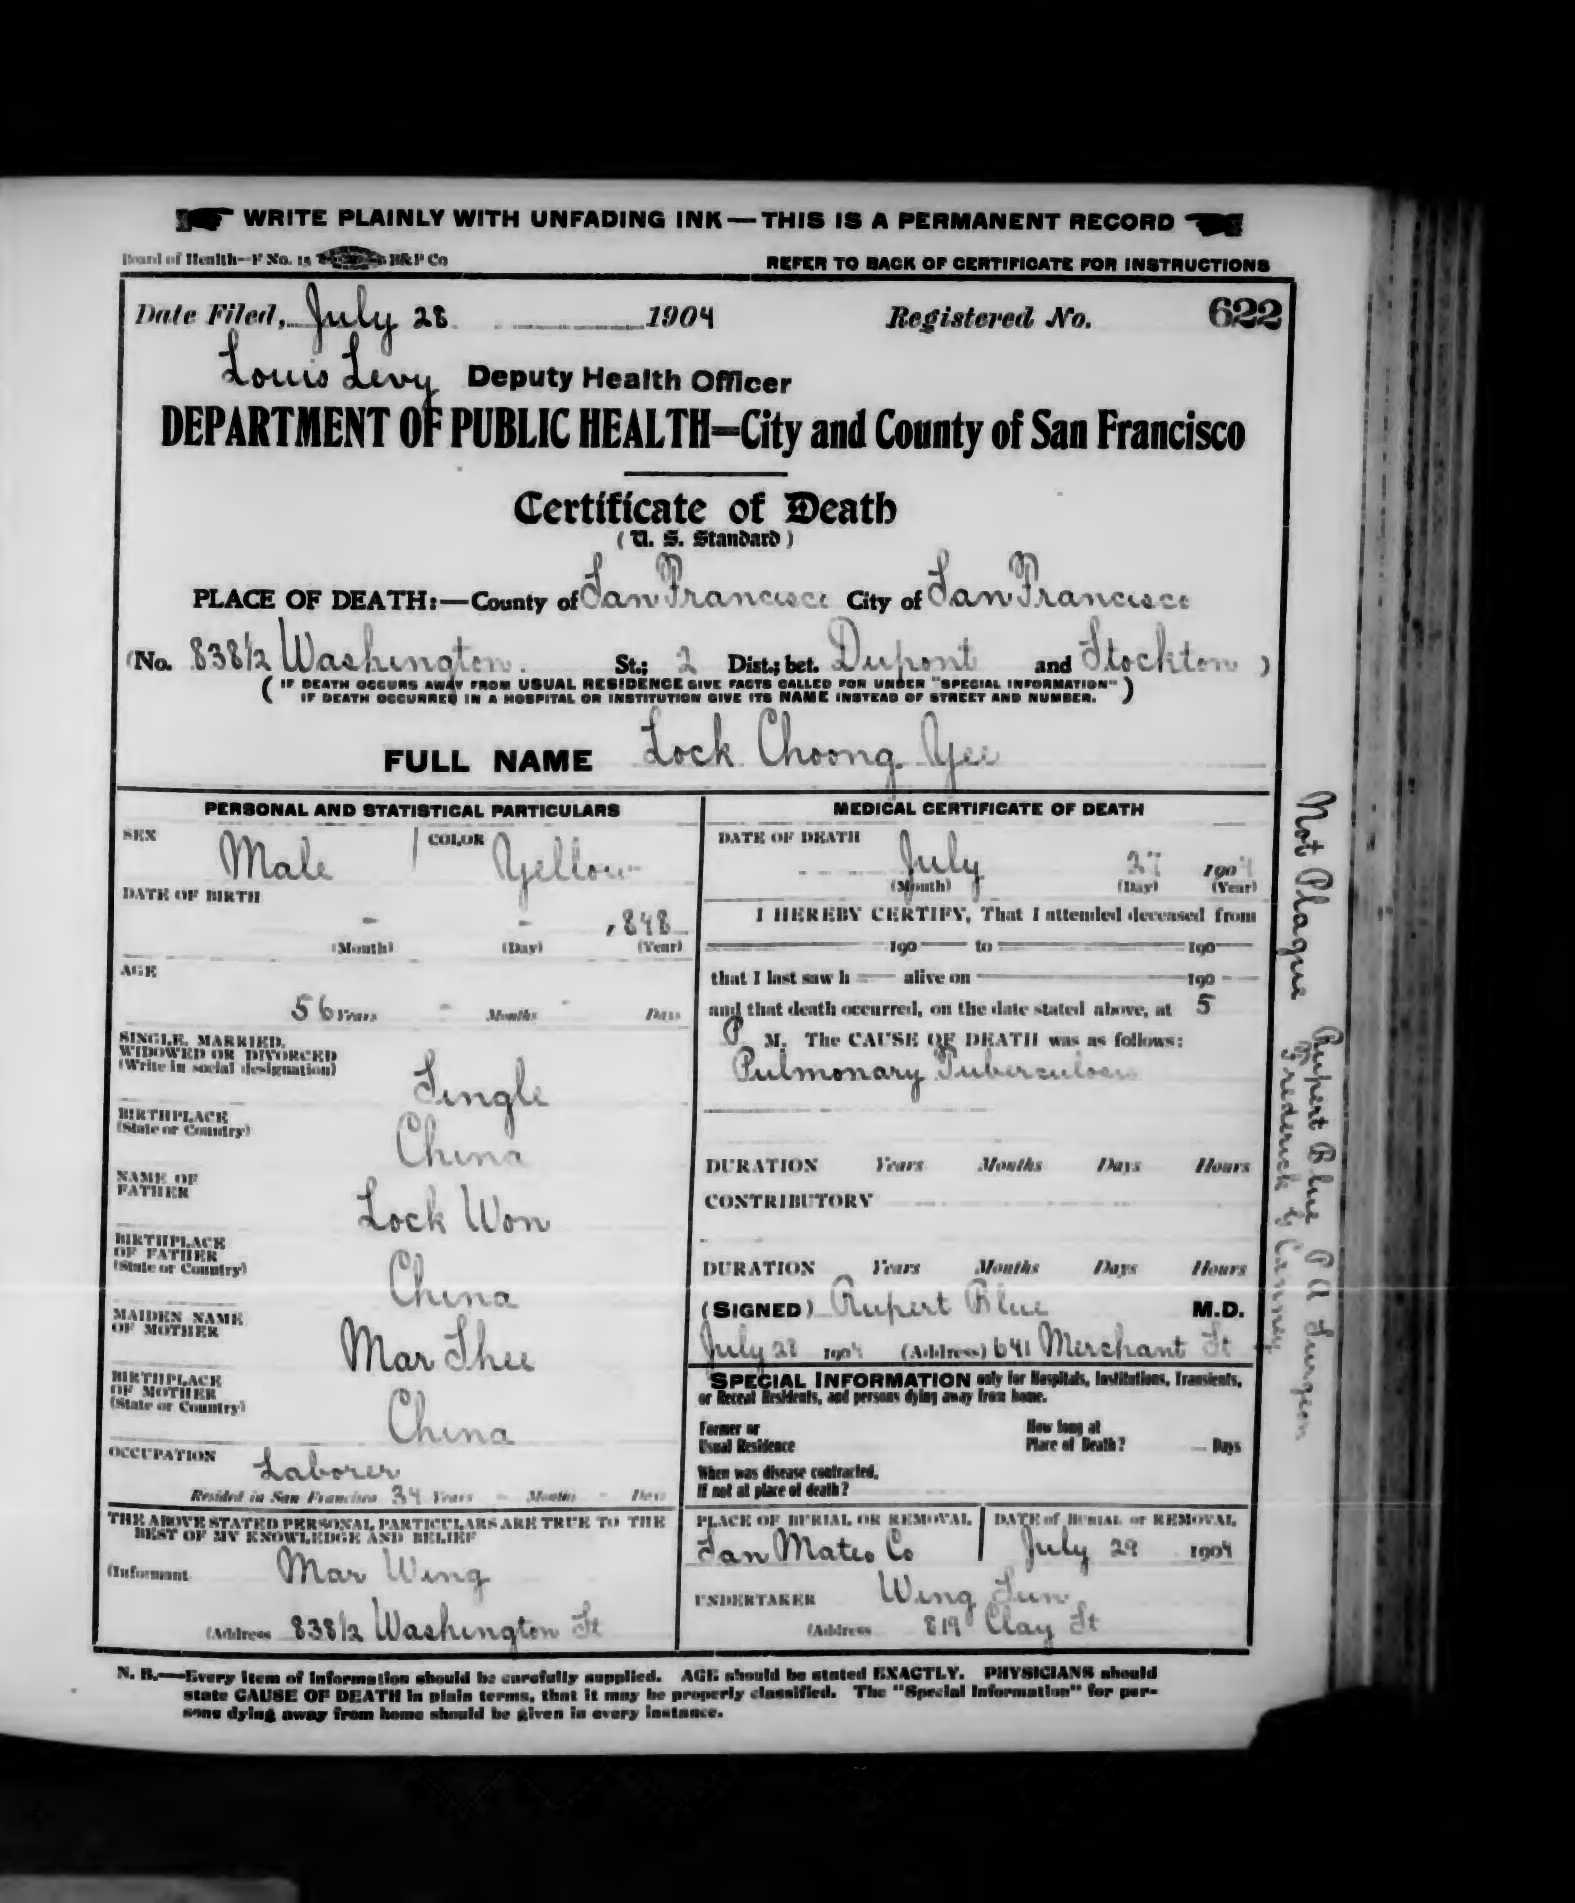 WRITE PLAINLY WITH UNFADING INK — THIS IS A PERMANENT RECORD
Board of Health—F No. 15 H&P Co
REFER TO BACK OF CERTIFICATE FOR INSTRUCTIONS
Date Filed, July 28 1904 Registered No. 622
Louis Levy Deputy Health Officer
DEPARTMENT OF PUBLIC HEALTH=City and County of San Francisco
Certificate of Death
(U. S. Standard)
PLACE OF DEATH:—County of San Francisco City of San Francisco
(No. 838 1/2 Washington. St.; 2 Dist.; bet. Dupont and Stockton )
( IF DEATH OCCURS AWAY FROM USUAL RESIDENCE GIVE FACTS CALLED FOR UNDER "SPECIAL INFORMATION" )
IF DEATH OCCURRED IN A HOSPITAL OR INSTITUTION GIVE ITS NAME INSTEAD OF STREET AND NUMBER.
FULL NAME Lock Choong Yee
PERSONAL AND STATISTICAL PARTICULARS
SEX Male COLOR Yellow
DATE OF BIRTH
- - 1848
(Month) (Day) (Year)
AGE
56 Years - Months - Days
SINGLE, MARRIED,
WIDOWED OR DIVORCED
(Write in social designation)
Single
BIRTHPLACE
(State or Country)
China
NAME OF
FATHER
Lock Won
BIRTHPLACE
OF FATHER
(State or Country)
China
MAIDEN NAME
OF MOTHER
Mar Shee
BIRTHPLACE
OF MOTHER
(State or Country)
China
OCCUPATION
Laborer
Resided in San Francisco 34 Years - Months - Days
THE ABOVE STATED PERSONAL PARTICULARS ARE TRUE TO THE
BEST OF MY KNOWLEDGE AND BELIEF
(Informant Mar Wing
(Address 838 1/2 Washington St
MEDICAL CERTIFICATE OF DEATH
DATE OF DEATH
July 27 1904
(Month) (Day) (Year)
I HEREBY CERTIFY, That I attended deceased from
190 to 190
that I last saw h alive on 190
and that death occurred, on the date stated above, at 5
P M. The CAUSE OF DEATH was as follows:
Pulmonary Tuberculosis
DURATION Years Months Days Hours
CONTRIBUTORY
DURATION Years Months Days Hours
(SIGNED) Rupert Blue M.D.
July 28 1904 (Address) 641 Merchant St
SPECIAL INFORMATION only for Hospitals, Institutions, Transients,
or Recent Residents, and persons dying away from home.
Former or
Usual Residence
How long at
Place of Death? Days
When was disease contracted,
If not at place of death?
PLACE OF BURIAL OR REMOVAL
San Mateo Co
DATE of BURIAL or REMOVAL
July 29 1904
UNDERTAKER Wing Sun
(Address 819 Clay St
N. B.—Every item of information should be carefully supplied. AGE should be stated EXACTLY. PHYSICIANS should
state CAUSE OF DEATH in plain terms, that it may be properly classified. The "Special Information" for per-
sons dying away from home should be given in every instance.
Not Plague Rupert Blue P A Surgeon
Frederick G Canney